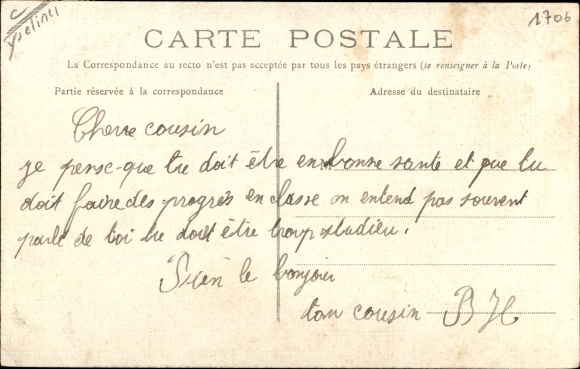 Yvelines
1706
CARTE POSTALE
La Correspondance au recto n'est pas acceptée par tous les pays étrangers (se renseigner à la Poste)
Partie réservée à la correspondance
Adresse du destinataire
Cherre cousin
je pense-que tu doit être en bonne sante et que tu
doit faire des progrès en classe on entend pas souvent
parlé de toi tu doit être trop studieu.
Bien le bonjour
ton cousin BH